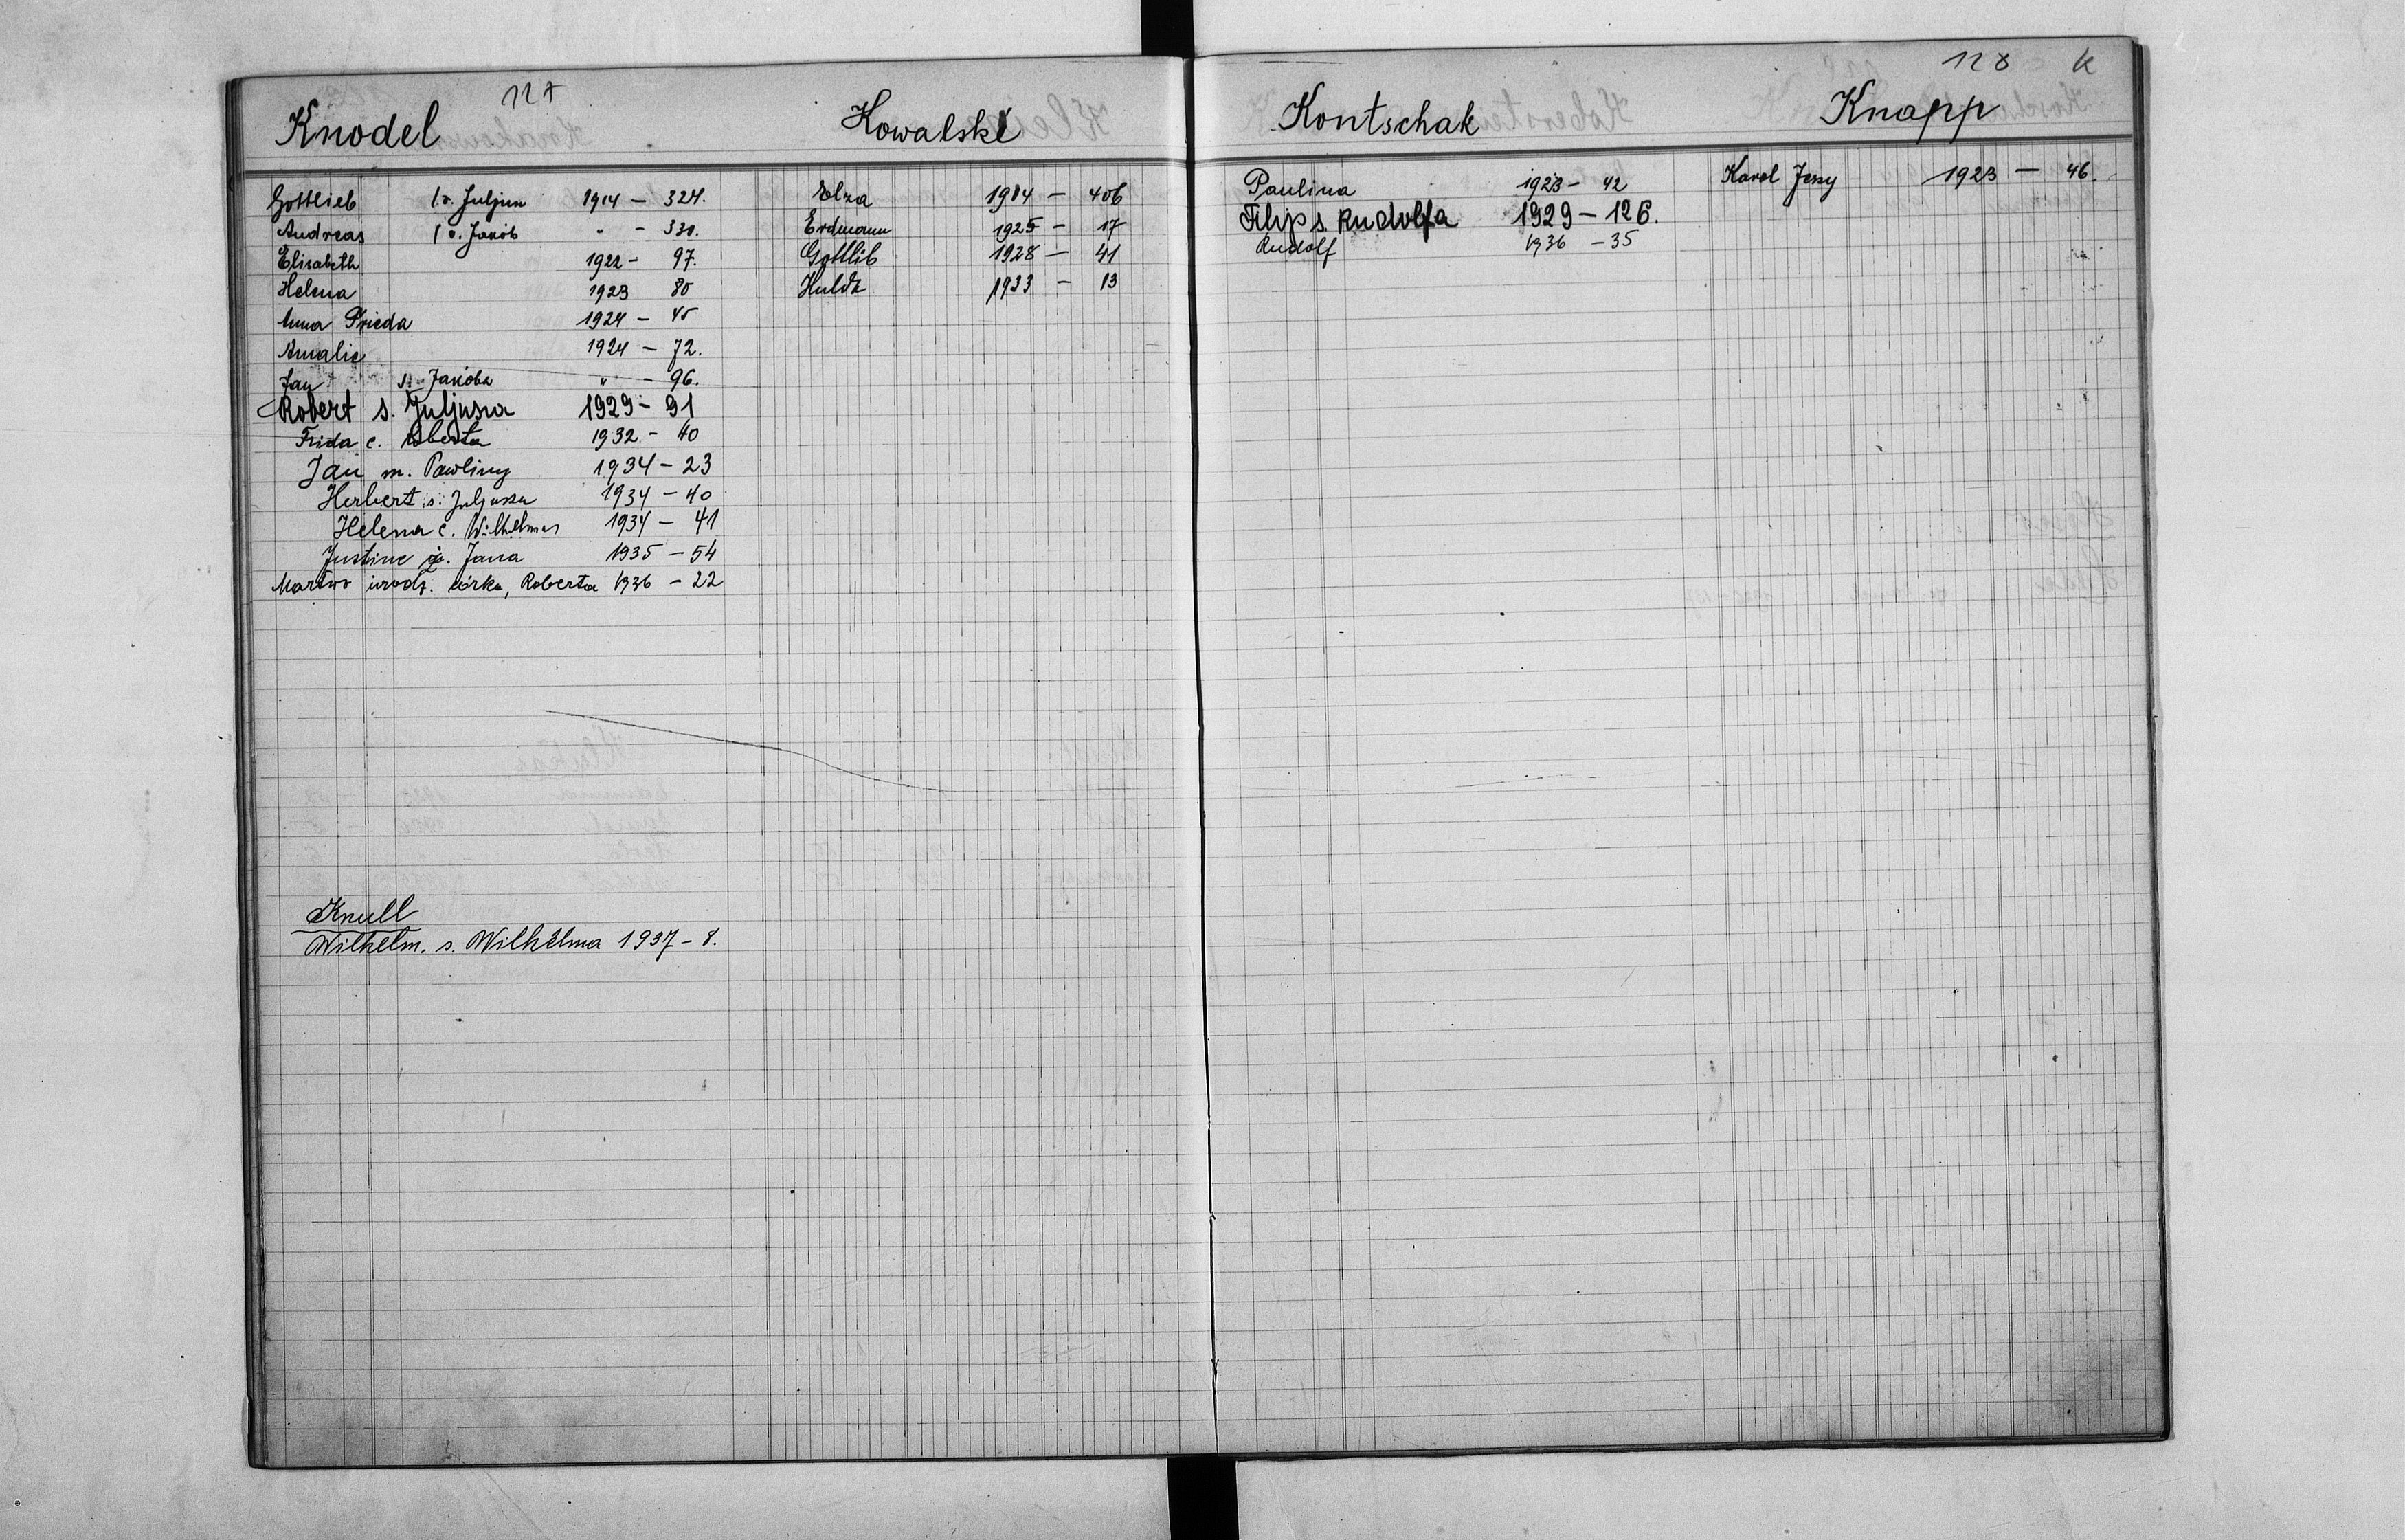 127
Knodel
Gottlieb s. Juljus 1914 - 324.
Andreas s. Jakób " - 330.
Elisabeth 1922 - 97.
Helena 1923 80
Anna Frieda 1924 - 45
Amalie 1924 - 72.
Jan s. Jakóba " - 96.
Robert s. Juljusza 1929 - 91
Frida c. Roberta 1932 - 40
Jan m. Pawliny 1934 - 23
Herbert s. Juljusza 1934 - 40
Helena c. Wilhelma 1934 - 41
Justine ż. Jana 1935 - 54
Martwo urodz. córka, Roberta 1936 - 22
Knull
Wilhelm. s. Wilhelma 1937 - 8.
Kowalski
Elza 1914 - 406
Erdmann 1925 - 17
Gottlib 1928 - 41
Hulda 1933 - 13
128 K
Kontschak
Paulina 1923 - 42
Filip s. Rudolfa 1929 - 126.
Rudolf 1936 - 35
Knapp
Karol Jerzy 1923 - 46.